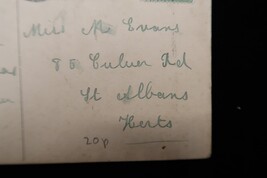 Miss M. Evans
88 Culver Rd
St Albans
Herts
20p